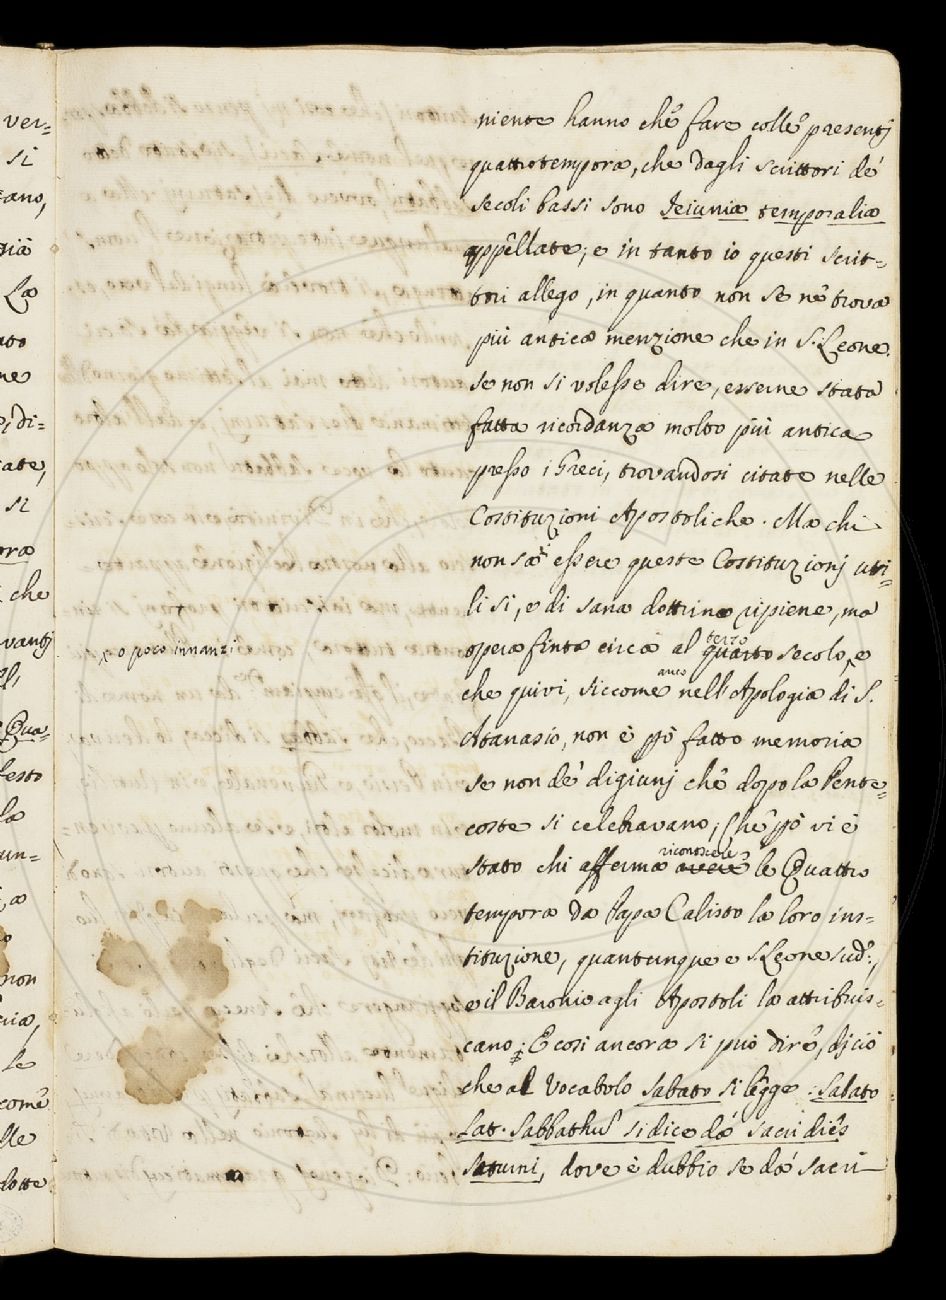 niente hanno che fare colle presentj
quattrotempora, che dagli scrittori de'
secoli bassi sono Ieiunia temporalia
appellate; e in tanto io questi scrit=
tori allego, in quanto non se ne trova
più antica menzione che in S. Leone.
se non si volesse dire, esserne stata
fatta ricordanza molto più antica
presso i Greci, trovandosi citate nelle
Costituzioni Apostoliche. Ma chi
non sa essere queste Costituzionj uti=
li sì, e di sana dottrina ripiene, ma
opera finta circa al quarto terzo secolo, e
o poco innanzi
che quivi, siccome anco nell'Apologia di S.
Atanasio, non è pò fatto memoria
se non de' digiunj che dopo la Pente=
coste si celebravano; Che pò vi è
stato chi afferma riconoscere le Quattro
tempora da Papa Calisto la loro ins=
tituzione, quantunque e S. Leone sud.º,
e il Baronio agli Apostoli la attribuis=
cano; E così ancora si può dire, di ciò
che al Vocabolo sabato si legge. Sabato
Lat. Sabbathus si dice da' sacri dies
saturni, dove è dubbio se da' sacri
ver=
si
ano,
La
ato
ne
di=
ate,
si
ora
che
vantj
Qua=
festo
la
un=
non
le
come
lle
dotte